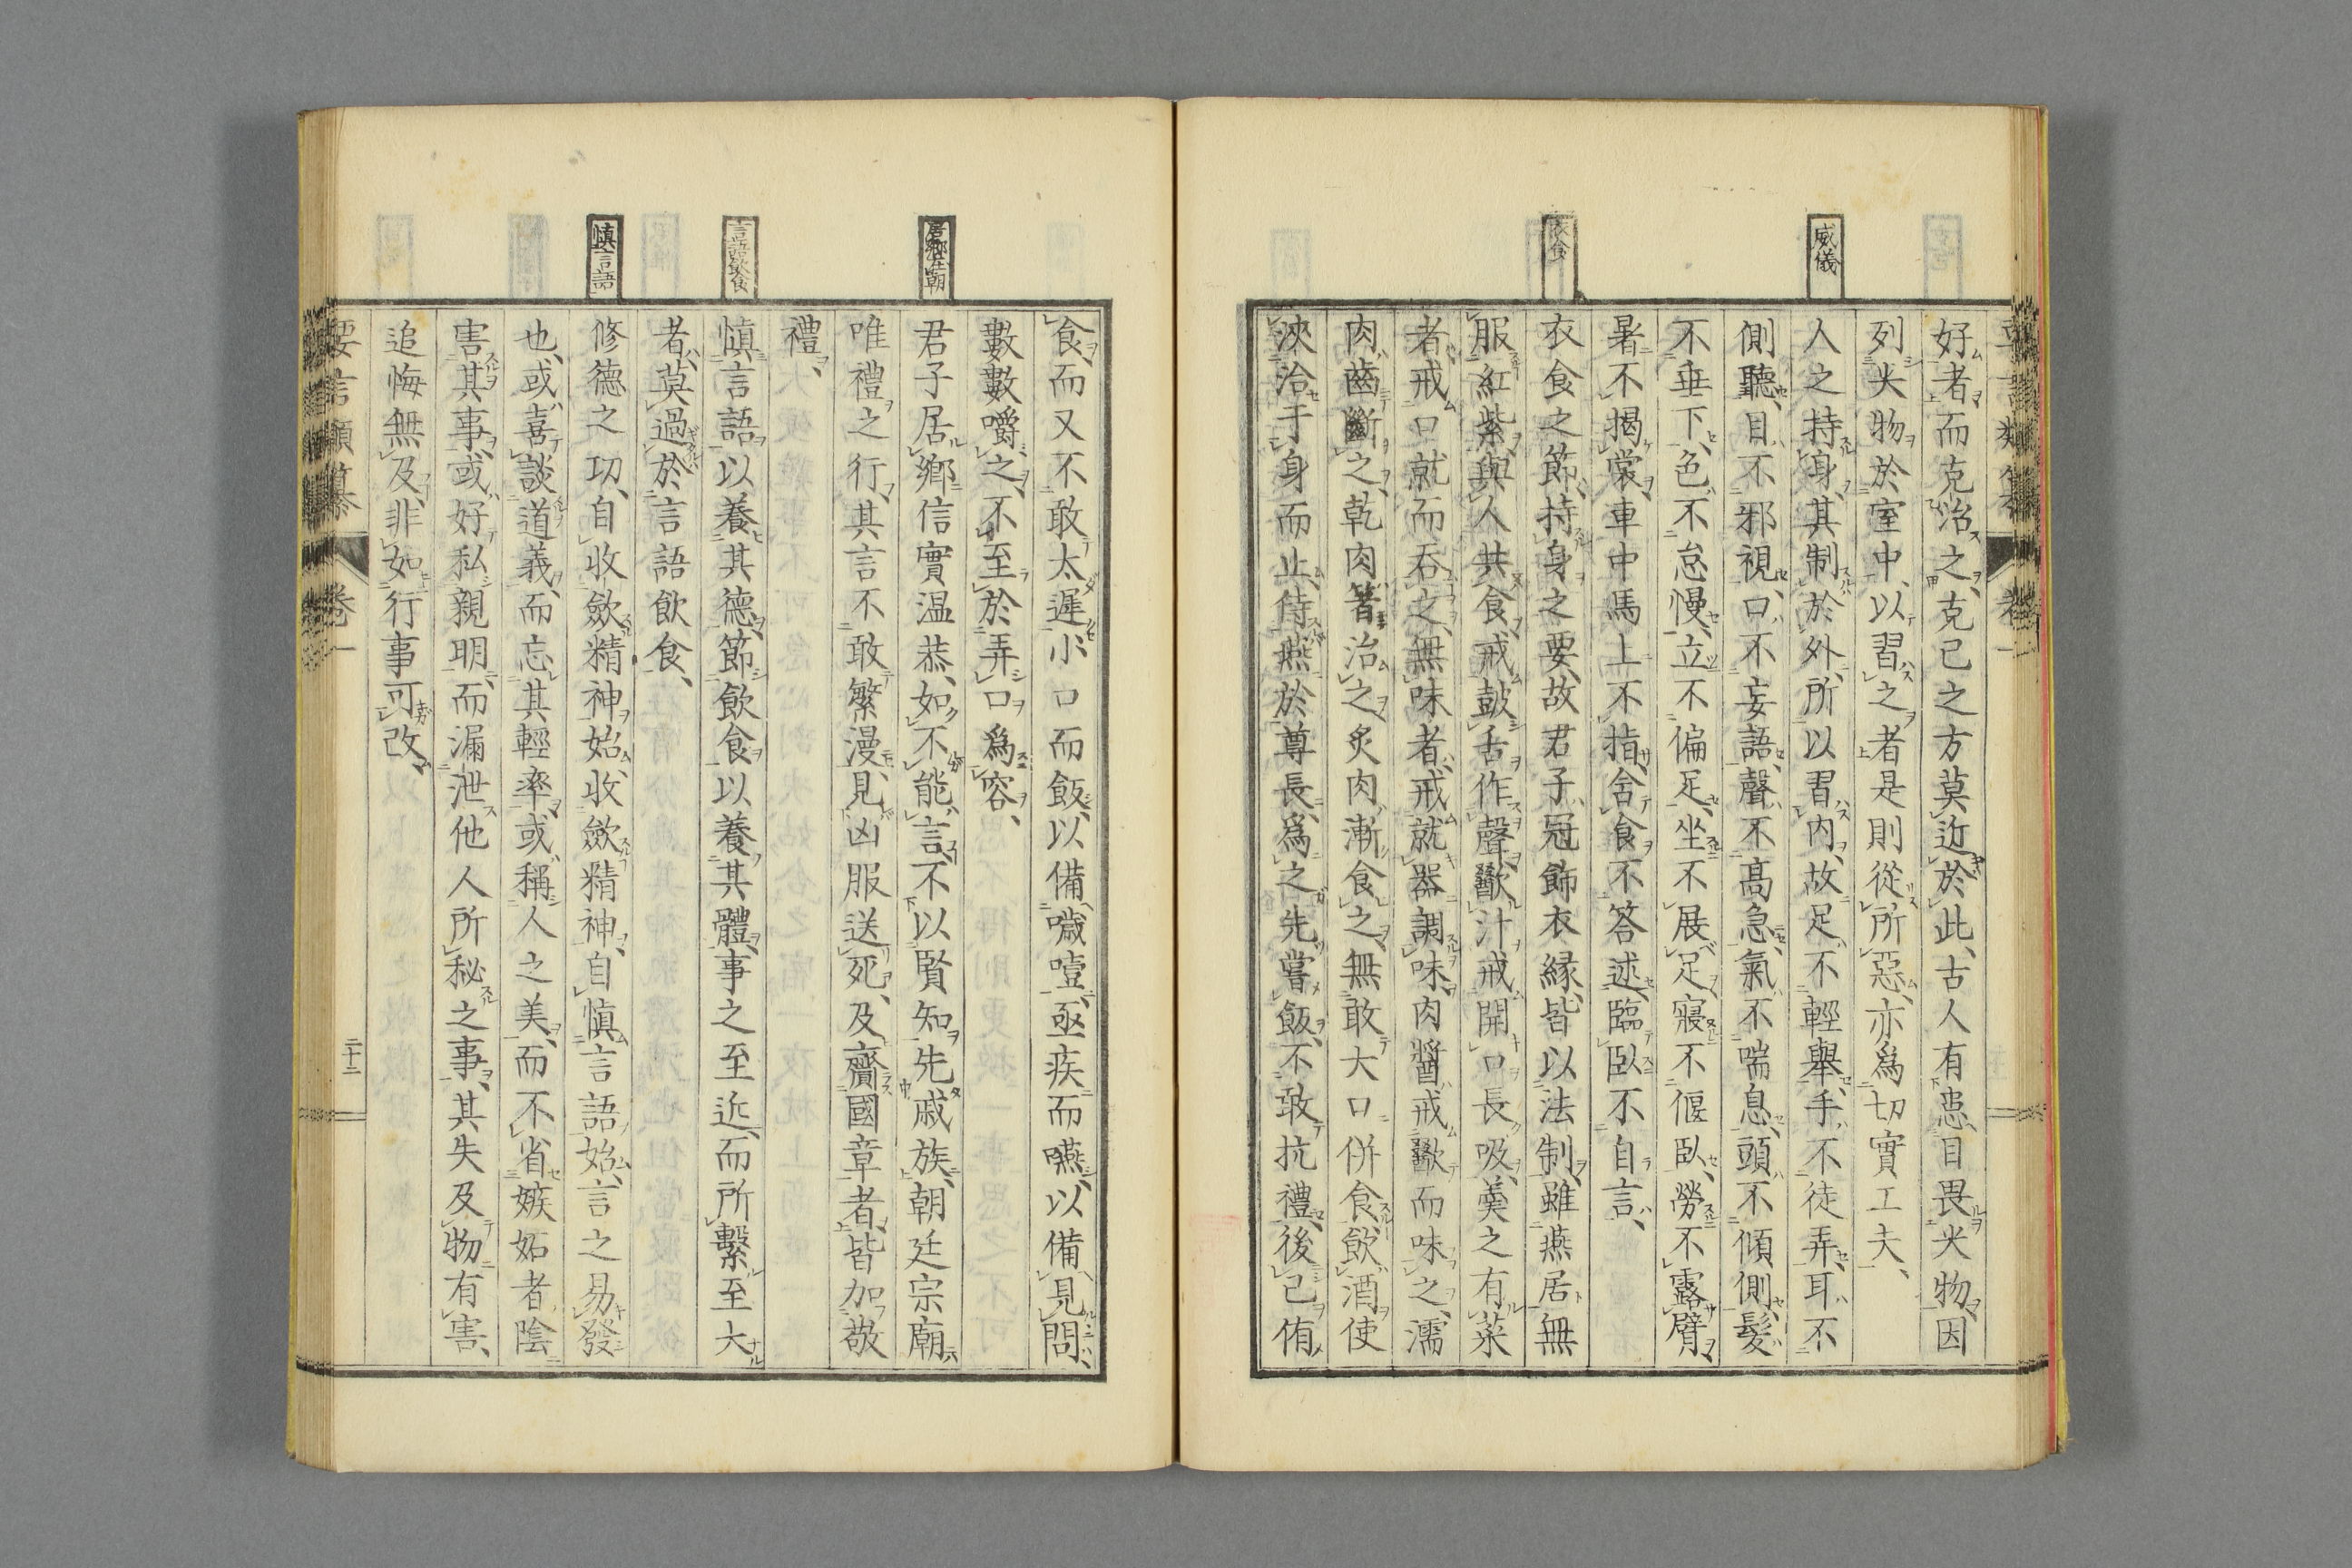 威儀
衣食
好者而克治之、克已之方莫近於此、古人有患、目畏尖物、因
列尖物於室中、以習之者是則從所惡、亦爲切實工夫、
人之持身、其制於外、所以習內、故足不輕舉、手不徒弄、耳不
側聽、目不邪視、口不妄語、聲不高急、氣不喘息、頭不傾側、髮
不垂下、色不怠慢、立不偏足、坐不展足、寢不偃臥、勞不露臂、
暑不揭裳、車中馬上不指、舍食不答述、臨臥不自言、
衣食之節、持身之要、故君子冠飾衣緣、皆以法制、雖燕居無
服紅紫、與人共食、戒鼓舌作聲、歠汁戒開口長吸、羹之有菜
者、戒口就而吞之、無味者、戒就器調味、肉醬戒歠而味之、濡
肉齒斷之、乾肉箸治之、炙肉漸食之、無敢大口併食、飲酒使
浹洽于身而止、侍燕於尊長、爲之先嘗飯、不敢抗禮、後已侑
居鄉在朝
言語飲食
慎言語
食、而又不敢太遲、小口而飯、以備噦噎、亟疾而嚥、以備見問、
數數嚼之、不至於弄口爲容、
君子居鄉信實温恭、如不能言、不以賢知先戚族、朝廷宗廟
唯禮之行、其言不敢繁漫、見凶服送死、及齎國章者、皆加敬
禮、
慎言語以養其德、節飲食以養其體、事之至近、而所繫至大
者、莫過於言語飲食、
修德之功、自收斂精神始、收斂精神、自慎言語始、言之易發
也、或喜談道義、而忘其輕率、或稱人之美、而不省嫉妬者陰
害其事、或好私親明、而漏泄他人所秘之事、其失及物有害、
追悔無及、非如行事可改、
要言類纂
卷一
二十二